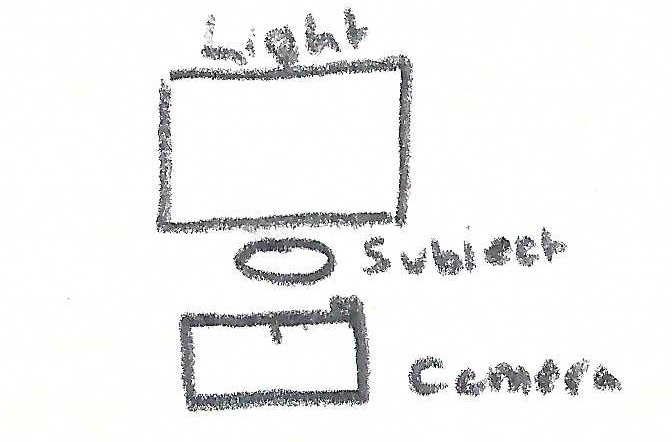 Light
Subject
Camera